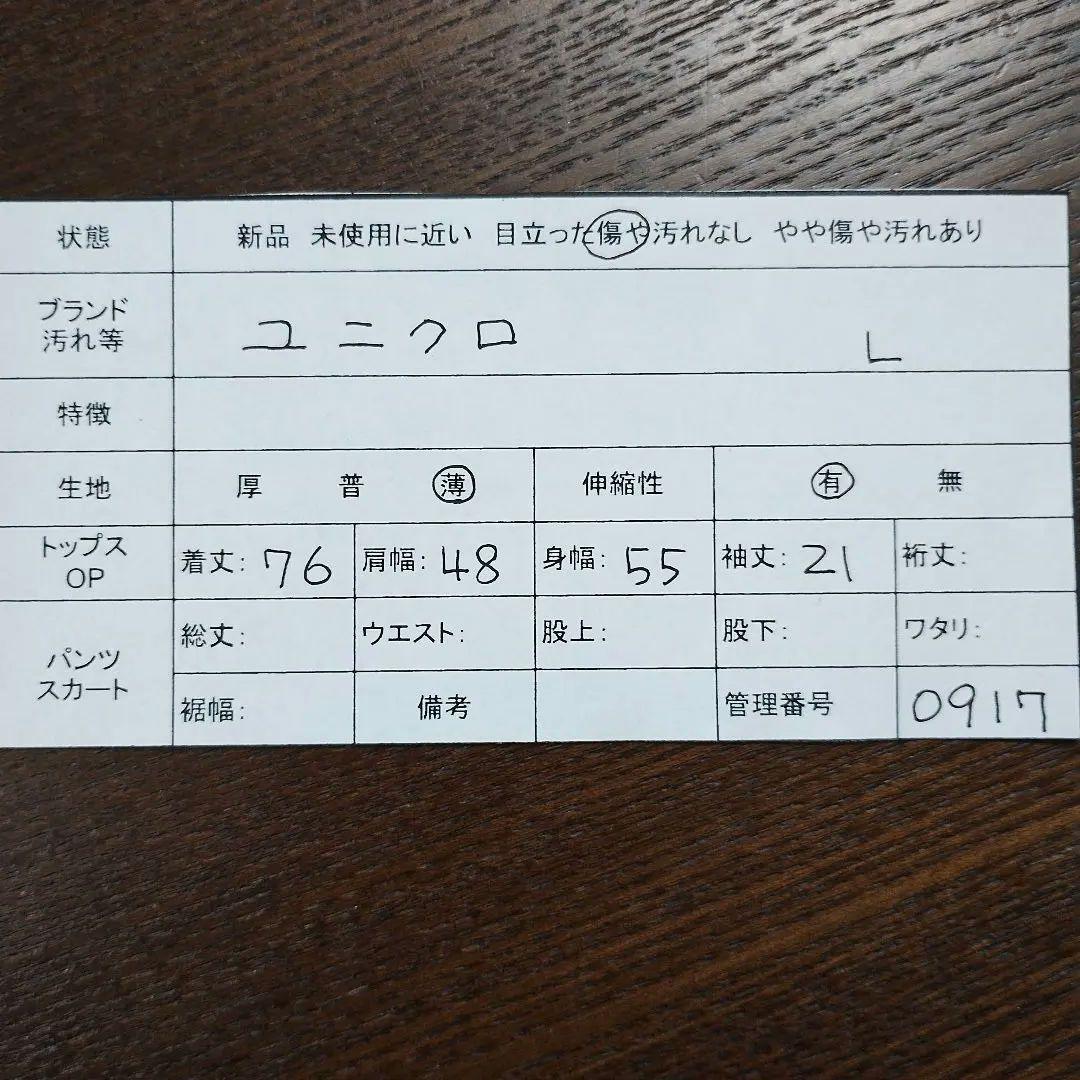 状態 新品 未使用に近い 目立った傷や汚れなし やや傷や汚れあり
ブランド
汚れ等
ユニクロ L
特徴
生地 厚 普 薄 伸縮性 有 無
トップス
OP
着丈: 76 肩幅: 48 身幅: 55 袖丈: 21 裄丈:
パンツ
スカート
総丈: ウエスト: 股上: 股下: ワタリ:
裾幅: 備考 管理番号 0917